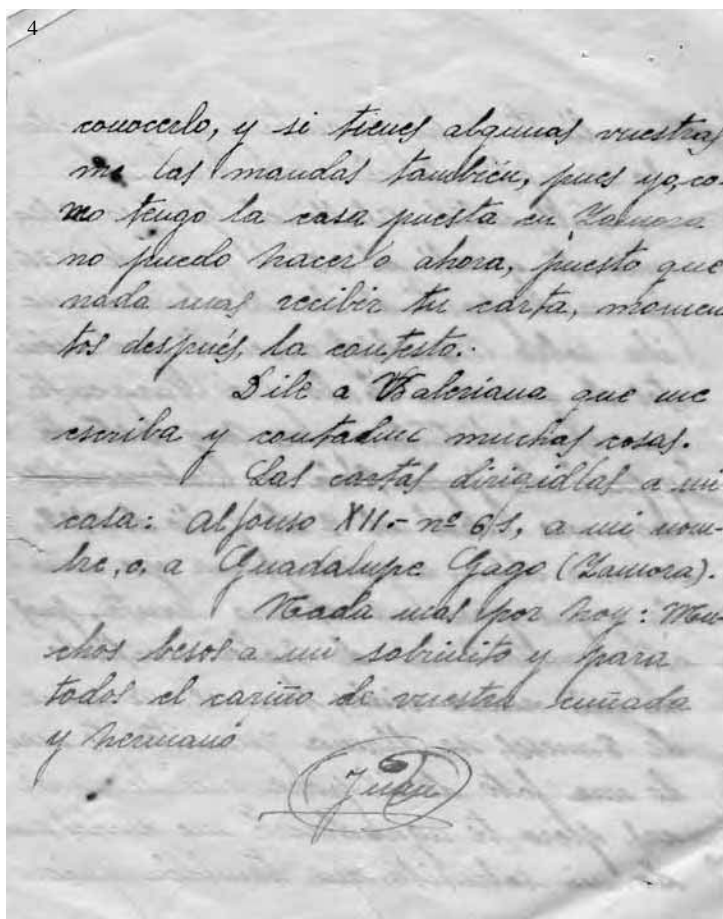 4
conocerlo, y si tienes algunas vuestras
me las mandas también, pues yo, co-
mo tengo la casa puesta en Zamora
no puedo hacerlo ahora, puesto que
nada mas recibir tu carta, momen
tos después, la contesto.-
Dile a Valeriana que me
escriba y contadme muchas cosas.
Las cartas dirigidlas a mi
casa: Alfonso XII.- nº 6/s, a mi nom-
bre, o, a Guadalupe Gago (Zamora).
Nada mas por hoy: Mu-
chos besos a mi sobrinito y para
todos el cariño de vuestra cuñada
y hermano
Juan